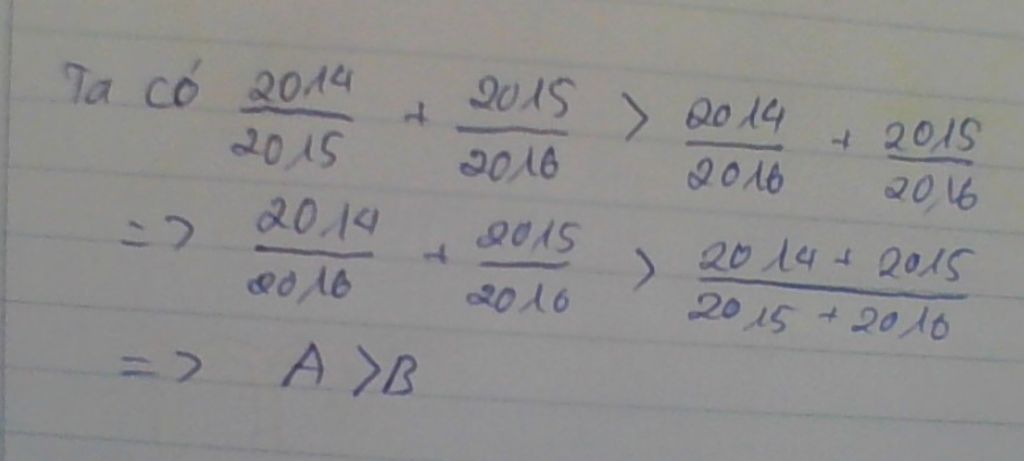 Ta có 2014/2015 + 2015/2016 > 2014/2016 + 2015/2016
=> 2014/2016 + 2015/2016 > (2014 + 2015)/(2015 + 2016)
=> A > B